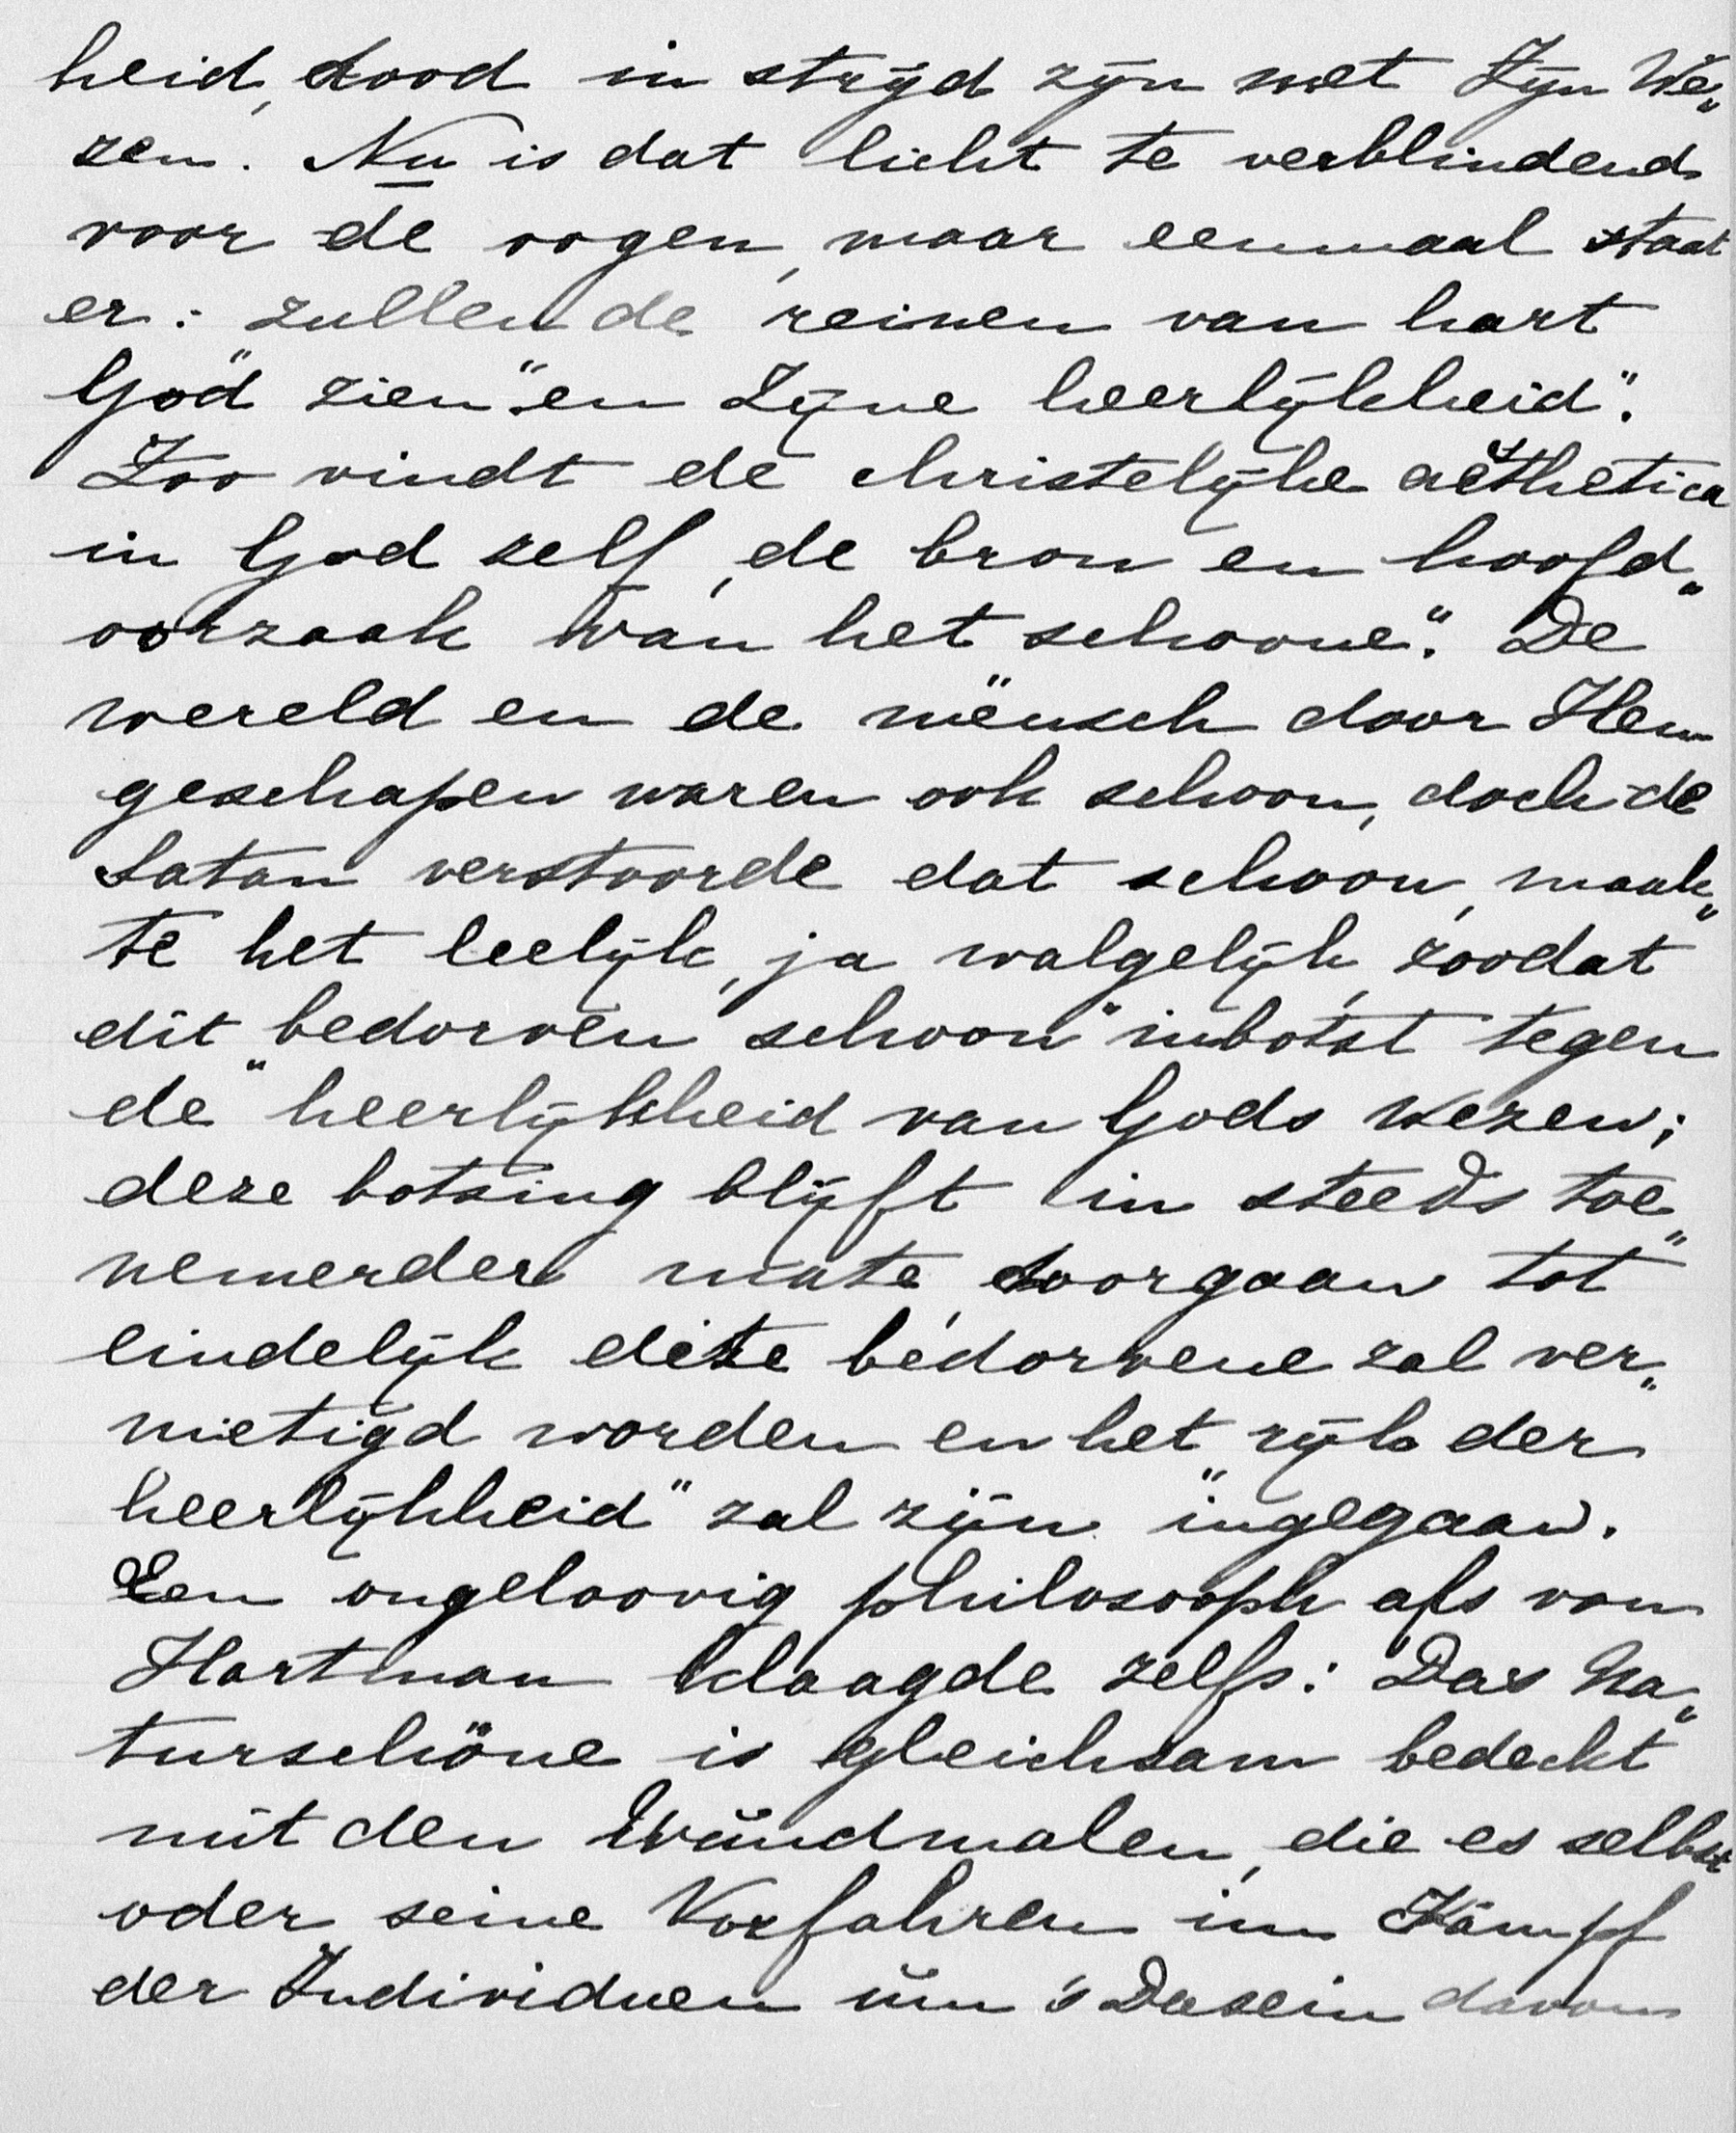 heid, dood in strijd zijn met Zijn We„
zen. Nu is dat licht te verblindend
voor de oogen, maar eenmaal staat
er: zullen de reinen van hart
God „zien" en Zijne heerlijkheid".
Zoo vindt de christelijke aesthetica
in God zelf, de bron en hoofd„
oorzaak van het „schoone". De
wereld en de mensch door Hem
geschapen waren ook schoon, doch de
Satan verstoorde dat schoon, maak„
te het leelijk, ja walgelijk, zoodat
dit „bedorven schoon" inbotst tegen
de „heerlijkheid van Gods wezen;
deze botsing blijft in steeds toe„
nemender mate, doorgaan tot
eindelijk deze bedorvene zal ver„
nietigd worden en het „rijk der
heerlijkheid" zal zijn ingegaan.
Een ongeloovig philosooph als von
Hartman klaagde zelfs: „Das Na„
turschöne is gleichsam bedeckt
mit den Wŭndmalen, die es selbst
oder seine Vorfahren im Kampf
der Individuen ŭm 's Dasein davon